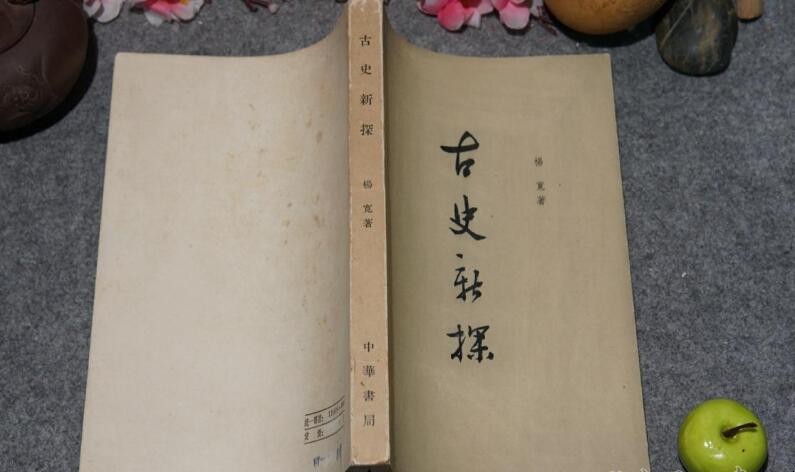 古史新探
楊寬著
古史新探
楊寬著
中華書局
統一書號:
定價: